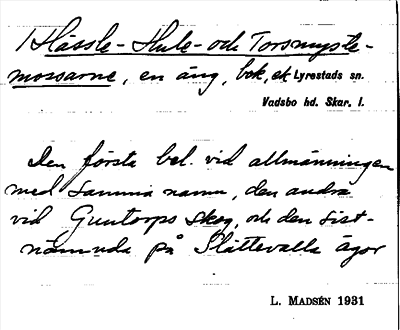 1 Hässle- Hule- och Torsmyste-
mossarne, en äng, bok, ek Lyrestads sn.
Vadsbo hd. Skar. l.
Den första bel. vid allmänningen
med samma namn, den andra
vid Guntorps skog, och den sist-
nämnda på Slättevalla ägor
L. MADSÉN 1931